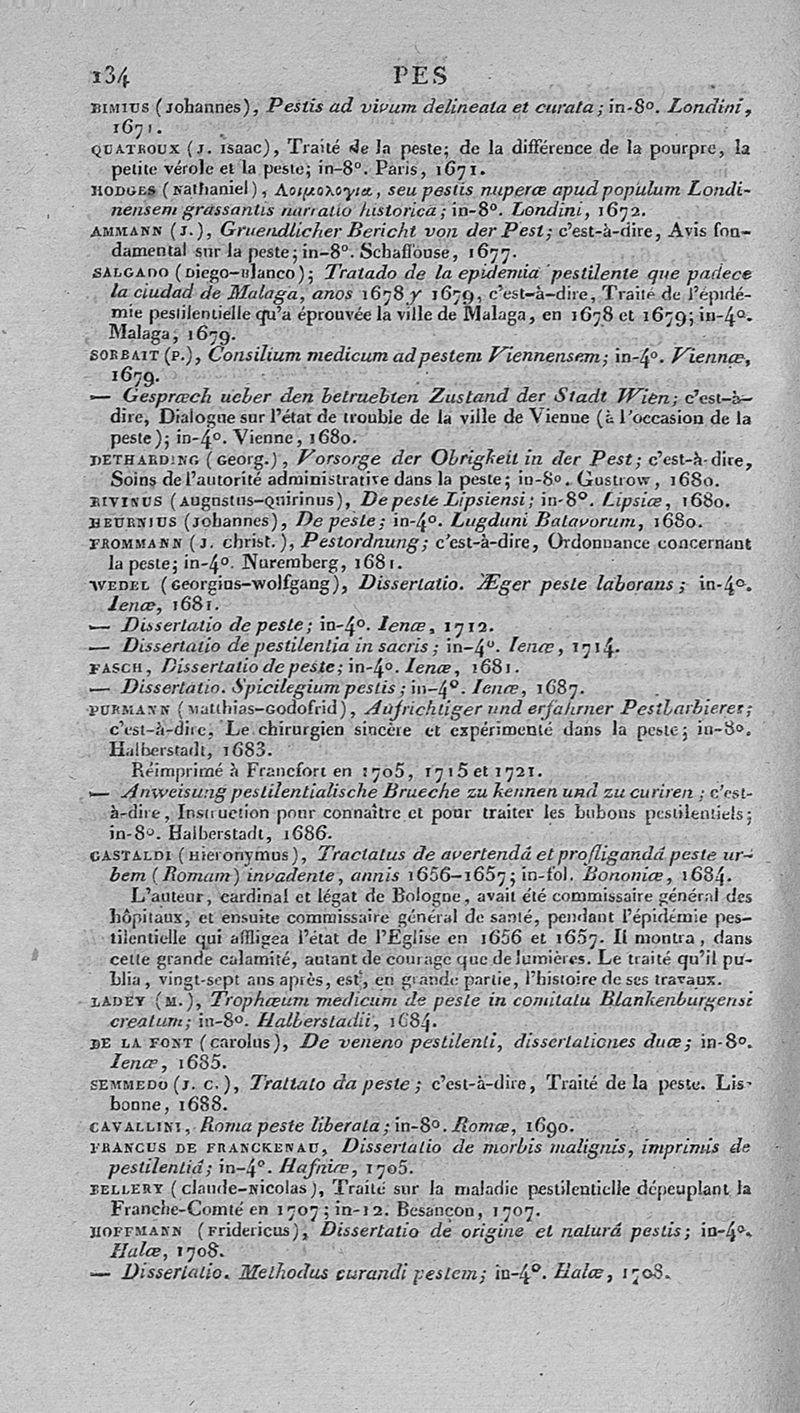 134 PES
BIMIUS (Johannes), Pestis ad vivum delineata et curata; in-8°. Londini,
1671.
QUATROUX (J. Isaac), Traité de la peste; de la différence de la pourpre, la
petite vérole et la peste; in-8°. Paris, 1671.
HODGES (Nathaniel), Λοιμολογια, seu pestis nuperæ apud populum Londi-
nensem grassantis narratio historica; in-8°. Londini, 1672.
AMMANN (J.), Gruendlicher Bericht von der Pest; c'est-à-dire, Avis fon-
damental sur la peste; in-8°. Schaffouse, 1677.
SALGADO (Diego-Blanco); Tratado de la epidemia pestilente que padece
la ciudad de Malaga, anos 1678 y 1679, c'est-à-dire, Traité de l'épidé-
mie pestilentielle qu'a éprouvée la ville de Malaga, en 1678 et 1679; in-4°.
Malaga, 1679.
SORBAIT (P.), Consilium medicum ad pestem Viennensem; in-4°. Viennæ,
1679.
— Gespræch ueber den betruebten Zustand der Stadt Wien; c'est-à-
dire, Dialogue sur l'état de trouble de la ville de Vienne (à l'occasion de la
peste); in-4°. Vienne, 1680.
DETHARDING (Georg.), Vorsorge der Obrigkeit in der Pest; c'est-à-dire,
Soins de l'autorité administrative dans la peste; in-8°. Gustrow, 1680.
RIVINUS (Augustus-Quirinus), De peste Lipsiensi; in-8°. Lipsiæ, 1680.
HEURNIUS (Johannes), De peste; in-4°. Lugduni Batavorum, 1680.
FROMMANN (J. Christ.), Pestordnung; c'est-à-dire, Ordonnance concernant
la peste; in-4°. Nuremberg, 1681.
WEDEL (Georgius-Wolfgang), Dissertatio. Æger peste laborans; in-4°.
Ienæ, 1681.
— Dissertatio de peste; in-4°. Ienæ, 1712.
— Dissertatio de pestilentia in sacris; in-4°. Ienæ, 1714.
FASCH, Dissertatio de peste; in-4°. Ienæ, 1681.
— Dissertatio. Spicilegium pestis; in-4°. Ienæ, 1687.
PURMANN (Matthias-Godofrid), Aufrichtiger und erfahrner Pestbarbierer;
c'est-à-dire, Le chirurgien sincère et expérimenté dans la peste; in-8°.
Halberstadt, 1683.
Réimprimé à Francfort en 1705, 1715 et 1721.
— Anweisung pestilentialische Brueche zu kennen und zu curiren; c'est-
à-dire, Instruction pour connaître et pour traiter les bubons pestilentiels;
in-8°. Halberstadt, 1686.
GASTALDI (Hieronymus), Tractatus de avertendâ et profligandâ peste ur-
bem (Romam) invadente, annis 1656-1657; in-fol. Bononiæ, 1684.
L'auteur, cardinal et légat de Bologne, avait été commissaire général des
hôpitaux, et ensuite commissaire général de santé, pendant l'épidémie pes-
tilentielle qui affligea l'état de l'Eglise en 1656 et 1657. Il montra, dans
cette grande calamité, autant de courage que de lumières. Le traité qu'il pu-
blia, vingt-sept ans après, est, en grande partie, l'histoire de ses travaux.
LADEY (M.), Trophæum medicum de peste in comitatu Blankenburgensi
creatum; in-8°. Halberstadii, 1684.
DE LA FONT (Carolus), De veneno pestilenti, dissertationes duæ; in-8°.
Ienæ, 1685.
SEMMEDO (J. C.), Trattato da peste; c'est-à-dire, Traité de la peste. Lis-
bonne, 1688.
CAVALLINI, Roma peste liberata; in-8°. Romæ, 1690.
FRANCUS DE FRANCKENAU, Dissertatio de morbis malignis, imprimis de
pestilentiâ; in-4°. Hafniæ, 1705.
BELLERY (Claude-Nicolas), Traité sur la maladie pestilentielle dépeuplant la
Franche-Comté en 1707; in-12. Besancon, 1707.
HOFFMANN (Fridericus), Dissertatio de origine et naturâ pestis; in-4°.
Halæ, 1708.
— Dissertatio. Methodus curandi pestem; in-4°. Halæ, 1708.